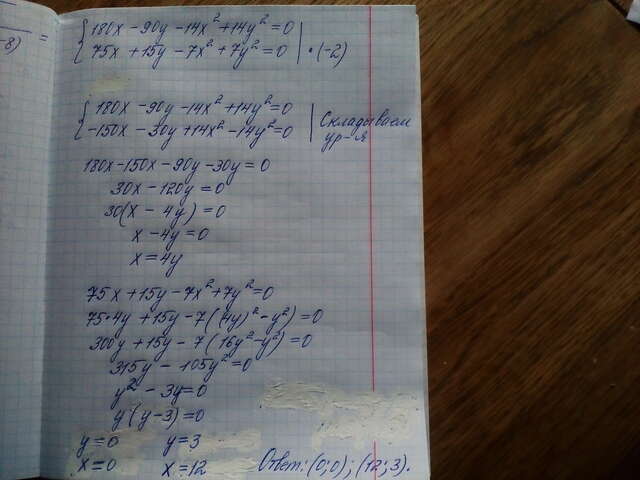 -8) =
180x - 90y - 14x² + 14y² = 0
75x + 15y - 7x² + 7y² = 0 | · (-2)
180x - 90y - 14x² + 14y² = 0
-150x - 30y + 14x² - 14y² = 0 | Складываем ур-я
180x - 150x - 90y - 30y = 0
30x - 120y = 0
30(x - 4y) = 0
x - 4y = 0
x = 4y
75x + 15y - 7x² + 7y² = 0
75·4y + 15y - 7((4y)² - y²) = 0
300y + 15y - 7(16y² - y²) = 0
315y - 105y² = 0
y² - 3y = 0
y(y - 3) = 0
y = 0 y = 3
x = 0 x = 12 Ответ: (0; 0); (12; 3).